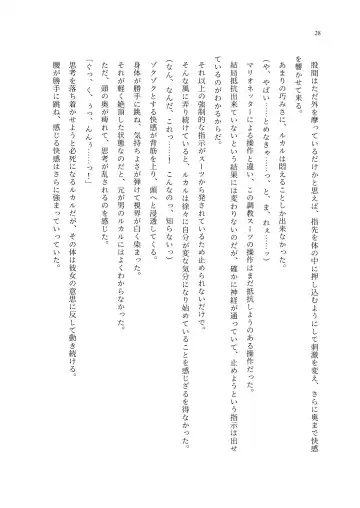 28
股間はただ外を摩っているだけかと思えば、指先を体の中に押し込むようにして刺激を変え、さらに奥まで快感
を響かせて来る。
あまりの巧みさに、ルカルは悶えることしか出来なかった。
(や、やばい……とめなきゃ……っ、と、ま、れぇ……ッ)
マリオネッターによる操作と違い、この調教スーツの操作はまだ抵抗しようのある操作だった。
結局抵抗出来ていないという結果には変わりないのだが、確かに神経が通っていて、止めようという指示は出せ
ているのがわかるからだ。
それ以上の強制的な指示がスーツから発されているため止められないだけで。
(なん、なんだ、これっ……！　こんなのっ、知らないっ)
そんな風に弄り続けていると、ルカルは徐々に自分が変な気分になり始めていることを感じざるを得なかった。
ゾクゾクとする快感が背筋を上り、頭へと浸透してくる。
身体が勝手に跳ね、気持ちよさが弾けて視界が白く染まった。
それが軽く絶頂した状態なのだが、元が男のルカルにはよくわからなかった。
ただ、頭の奥が痺れて、思考が乱されるのを感じた。
「ぐっ、く、ぅっ、んんぅ……っ！」
思考を落ち着かせようと必死になるルカルだが、その体は彼女の意思に反して動き続ける。
腰が勝手に跳ね、感じる快感はさらに強まっていっていた。